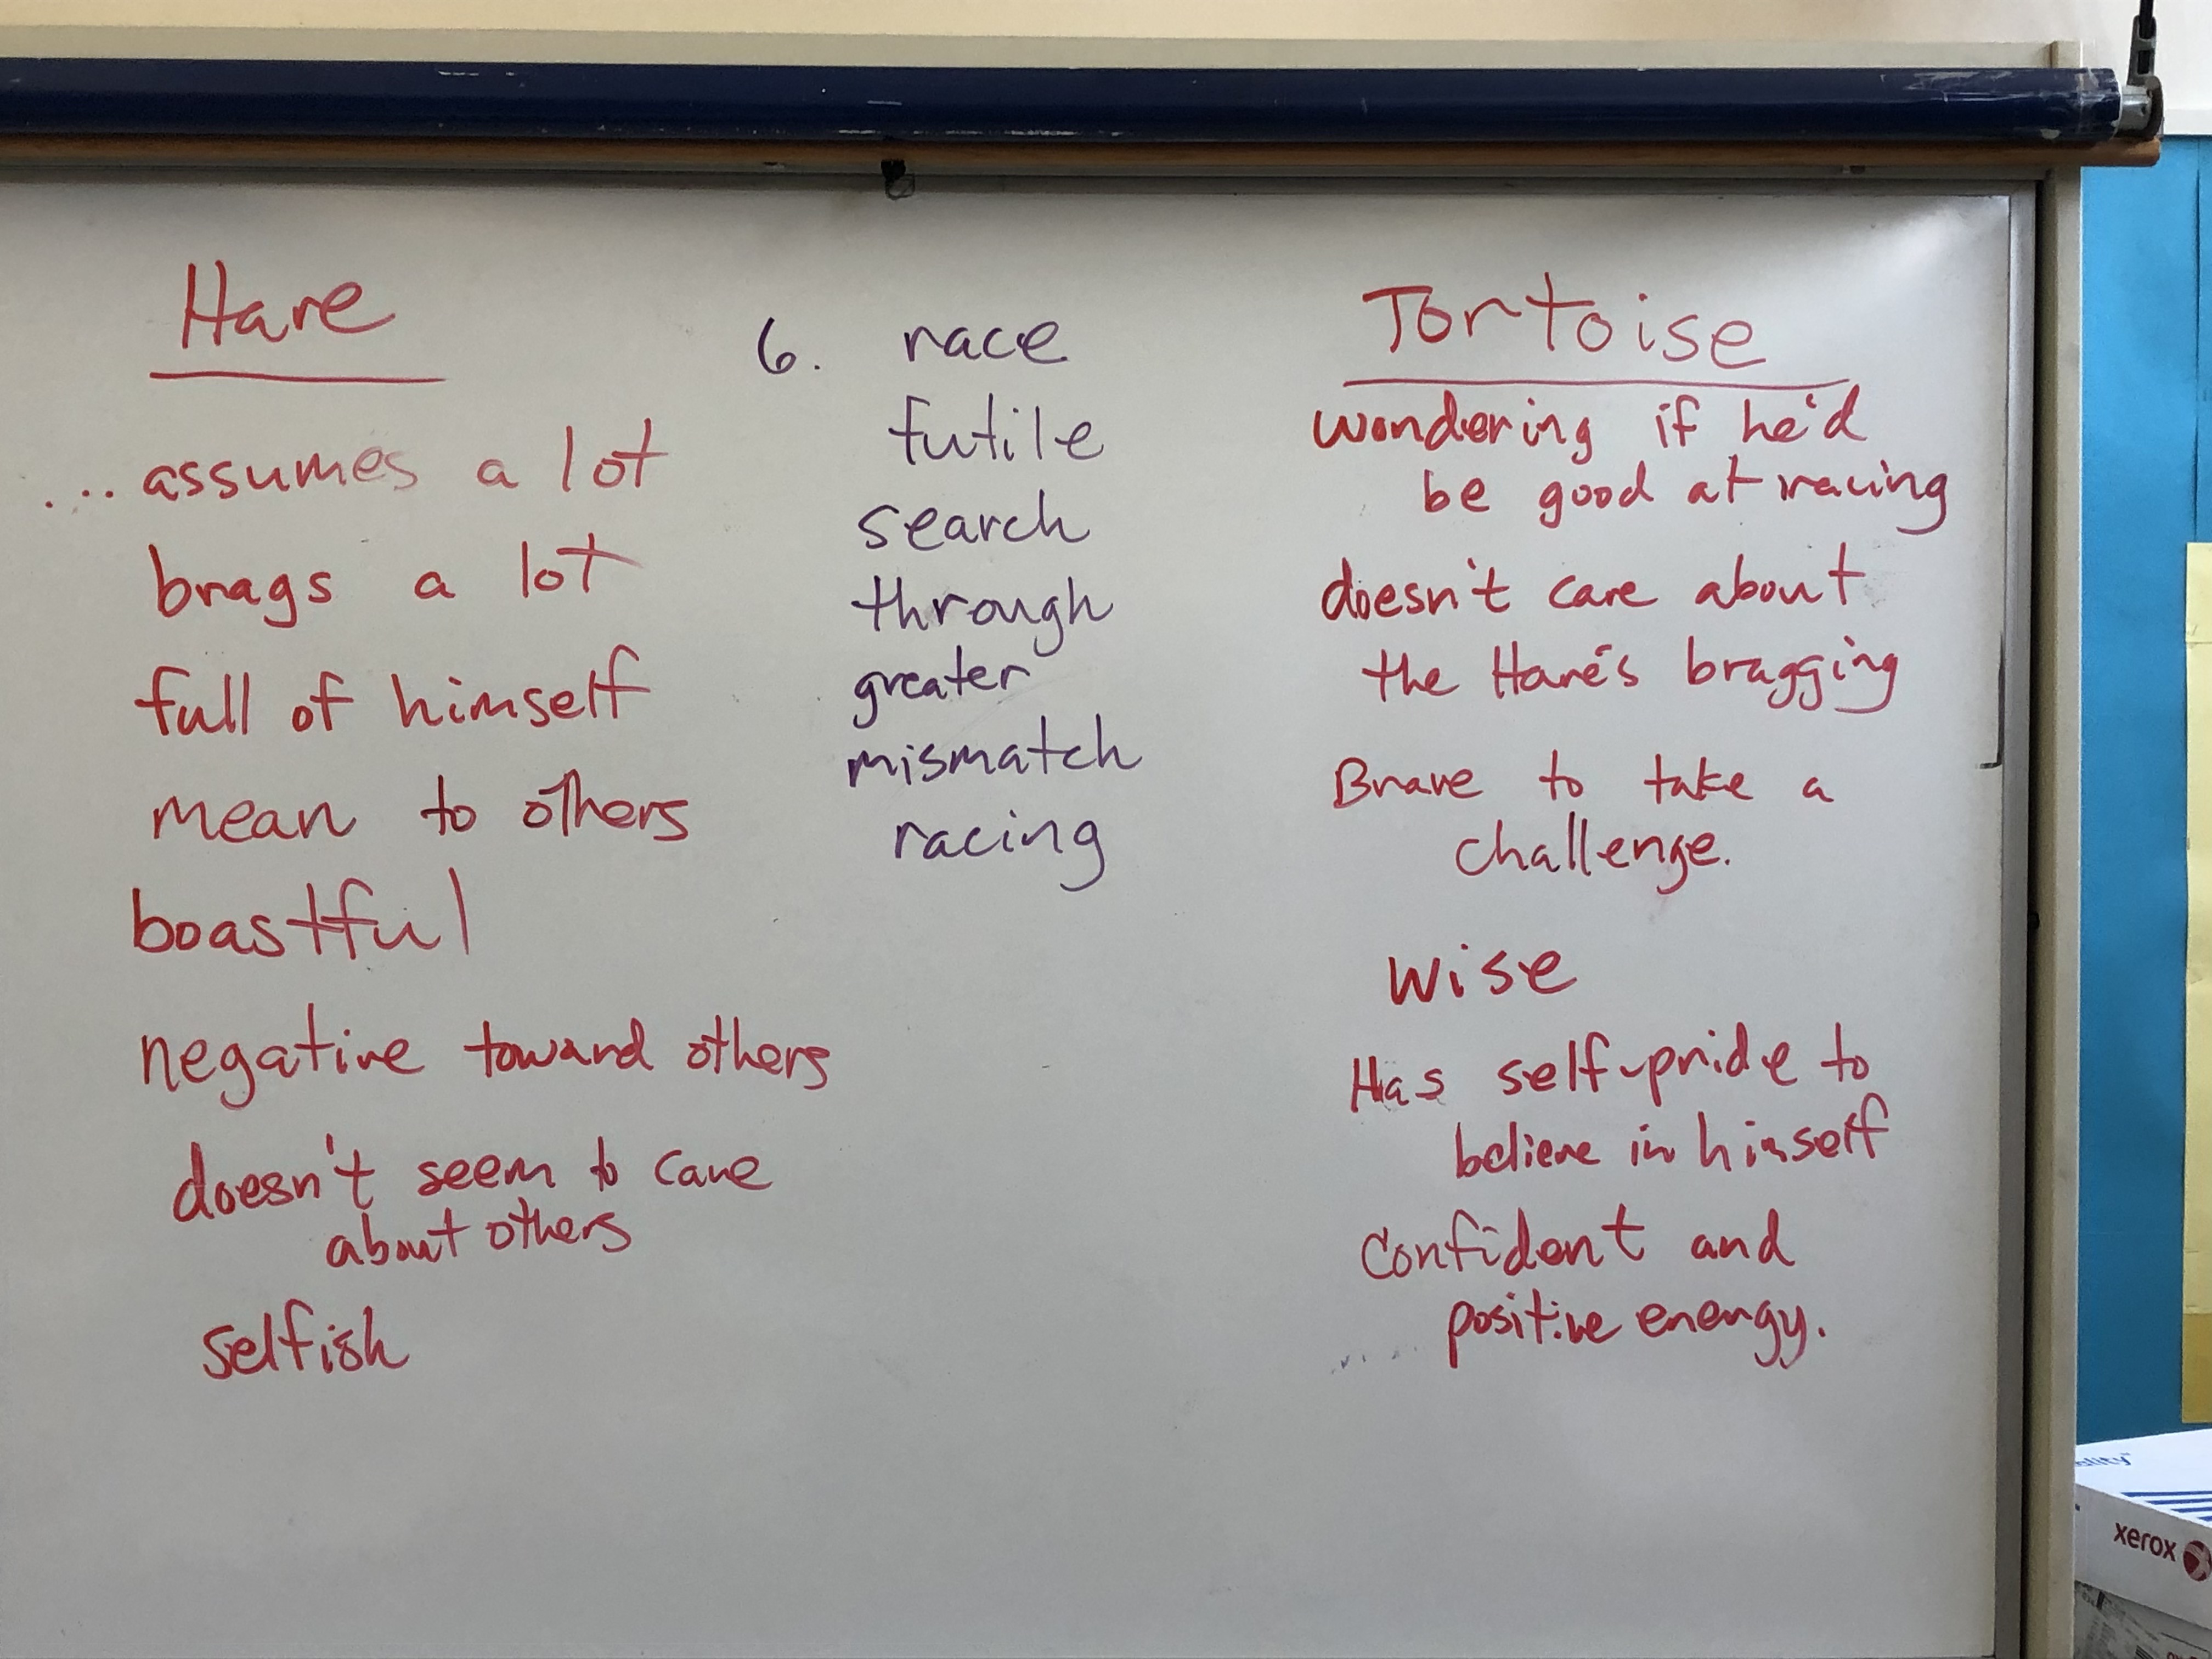 Hare
... assumes a lot
brags a lot
full of himself
mean to others
boastful
negative toward others
doesn't seem to care
about others
selfish
6. race
futile
search
through
greater
mismatch
racing
Tortoise
wondering if he'd
be good at racing
doesn't care about
the Hare's bragging
Brave to take a
challenge.
wise
Has self-pride to
believe in himself
Confident and
positive energy.
xerox